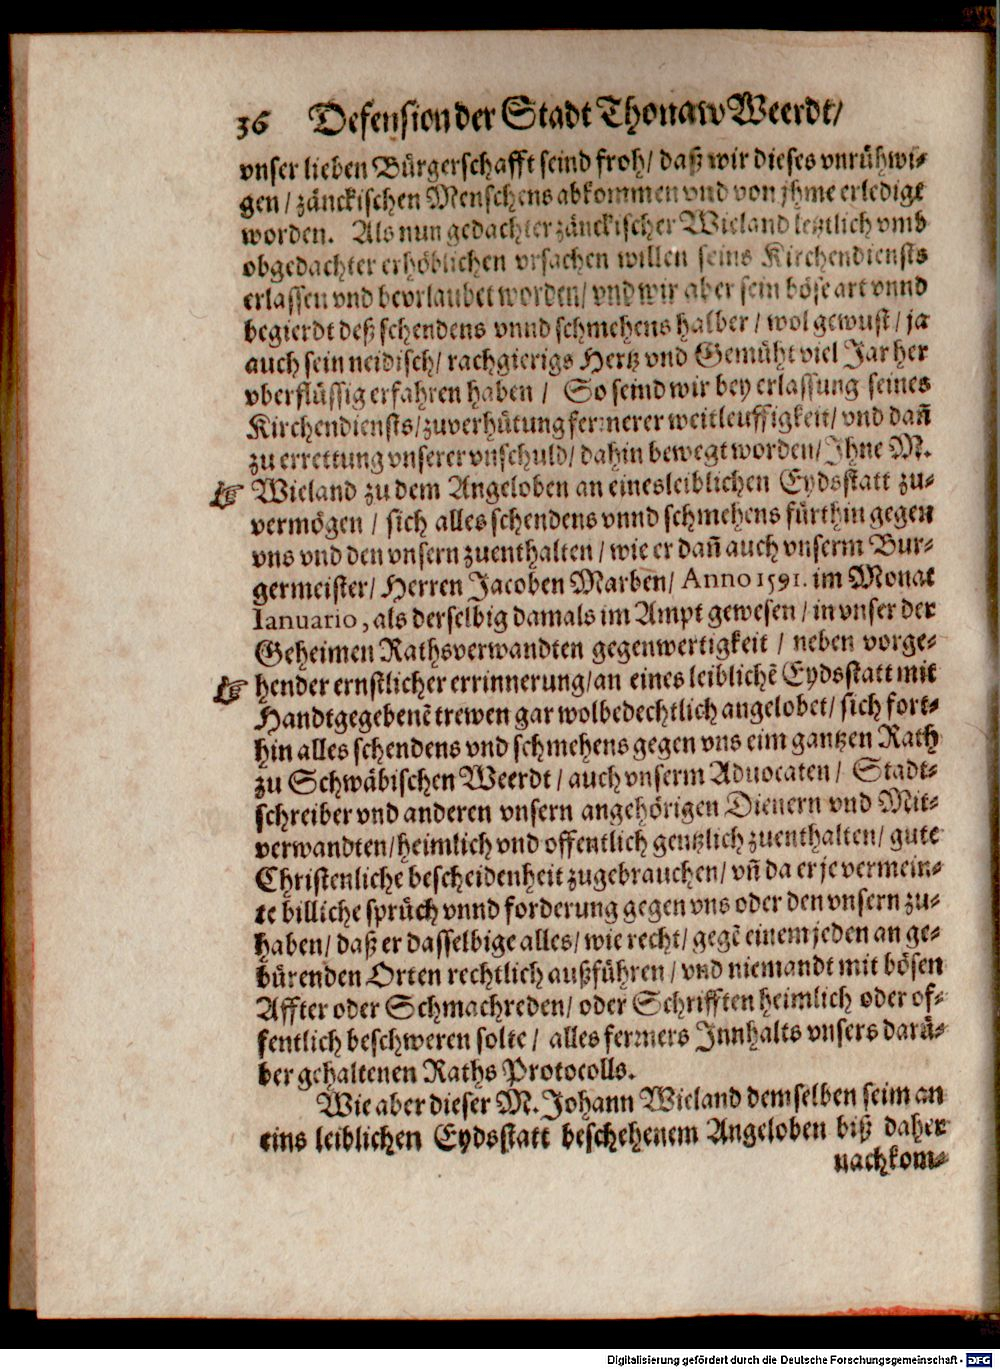 36 Defension der Stadt Thonaw Weerdt/
vnser lieben Bürgerschafft seind froh/ daß wir dieses vnrühwi-
gen/ zänckischen Menschens abkommen vnd von jhme erledigt
worden. Als nun gedachter zänckischer Wieland letztlich vmb
obgedachter erhöblichen vrsachen willen seins Kirchendiensts
erlassen vnd bevrlaubet worden/ vnd wir aber sein böse art vnnd
begierdt deß schendens vnnd schmehens halber/ wol gewust/ ja
auch sein neidisch/ rachgierigs Hertz vnd Gemüht viel Jar her
vberflüssig erfahren haben/ So seind wir bey erlassung seines
Kirchendiensts/ zuverhütung fermerer weitleuffigkeit/ vnd dañ
zu errettung vnserer vnschuld/ dahin bewegt worden/ Ihne M.
☞ Wieland zu dem Angeloben an eines leiblichen Eydsstatt zu-
vermögen/ sich alles schendens vnnd schmehens fürthin gegen
vns vnd den vnsern zuenthalten/ wie er dañ auch vnserm Bur-
germeister/ Herren Jacoben Marben/ Anno 1591. im Monat
Ianuario, als derselbig damals im Ampt gewesen/ in vnser der
Geheimen Rathsverwandten gegenwertigkeit/ neben vorge-
☞ hender ernstlicher errinnerung/ an eines leiblichẽ Eydsstatt mit
Handtgegebenẽ trewen gar wolbedechtlich angelobet/ sich fort-
hin alles schendens vnd schmehens gegen vns eim gantzen Rath
zu Schwäbischen Weerdt/ auch vnserm Aduocaten/ Stadt-
schreiber vnd anderen vnsern angehörigen Dienern vnd Mit-
verwandten/ heimlich vnd offentlich gentzlich zuenthalten/ gute
Christenliche bescheidenheit zugebrauchen/ vñ da er je vermein-
te billiche sprüch vnnd forderung gegen vns oder den vnsern zu-
haben/ daß er dasselbige alles/ wie recht/ gegẽ einem jeden an ge-
bürenden Orten rechtlich außführen/ vnd niemandt mit bösen
Affter oder Schmachreden/ oder Schrifften heimlich oder of-
fentlich beschweren solte/ alles fermers Innhalts vnsers darü-
ber gehaltenen Raths Protocolls.
Wie aber dieser M. Johann Wieland demselben seim an
eins leiblichen Eydsstatt beschehenem Angeloben biß daher
nachkom-
Digitalisierung gefördert durch die Deutsche Forschungsgemeinschaft - DFG